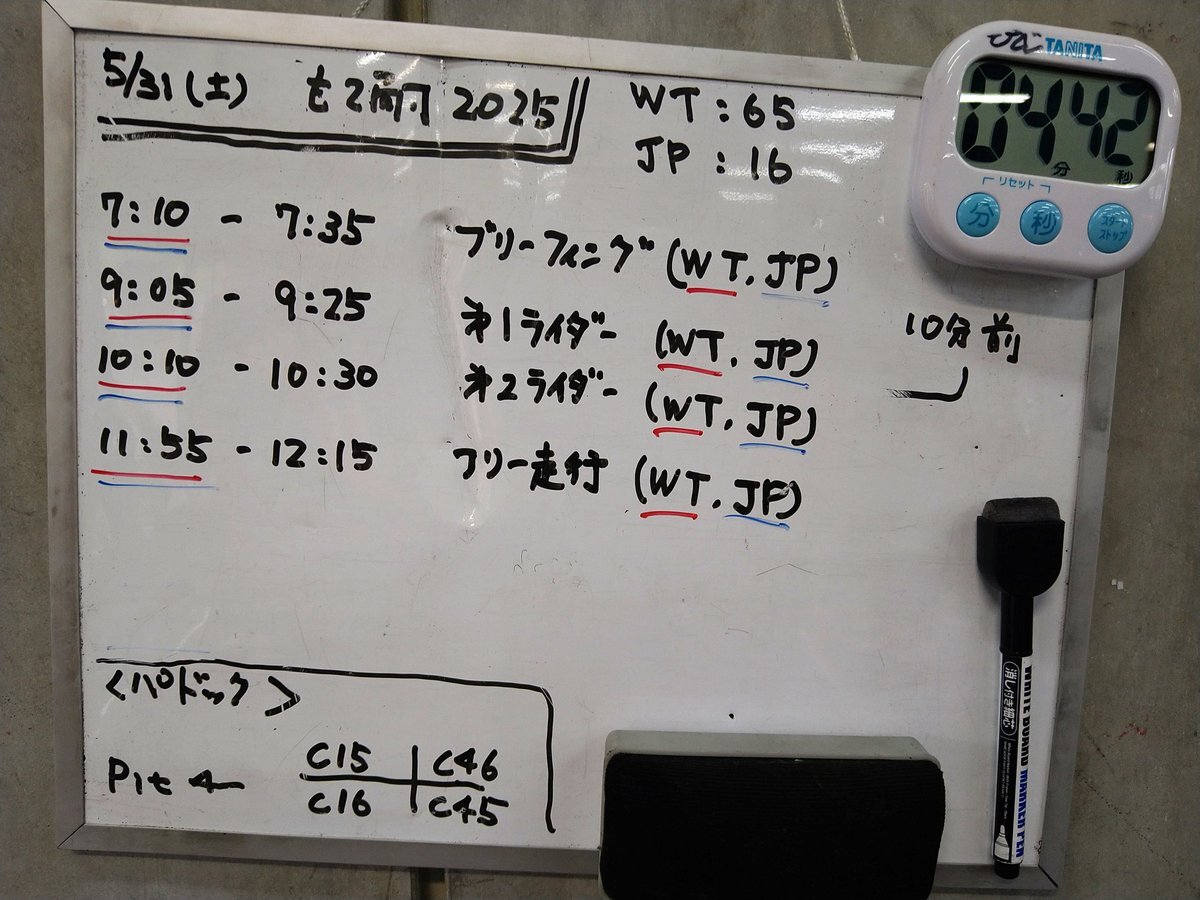 5/31(土) もて耐 2025
WT:65
JP:16
7:10 - 7:35 ブリーフィング (WT, JP)
9:05 - 9:25 オ1ライダー (WT, JP)
10:10 - 10:30 オ2ライダー (WT, JP)
11:55 - 12:15 フリー走行 (WT, JP)
10分前
<パドック>
Pit ← C15 C46
C16 C45
TANITA
04 42
分 秒
リセット
分 秒 スタート
ストップ
WHITE BOARD MARKER
消し付き 細芯